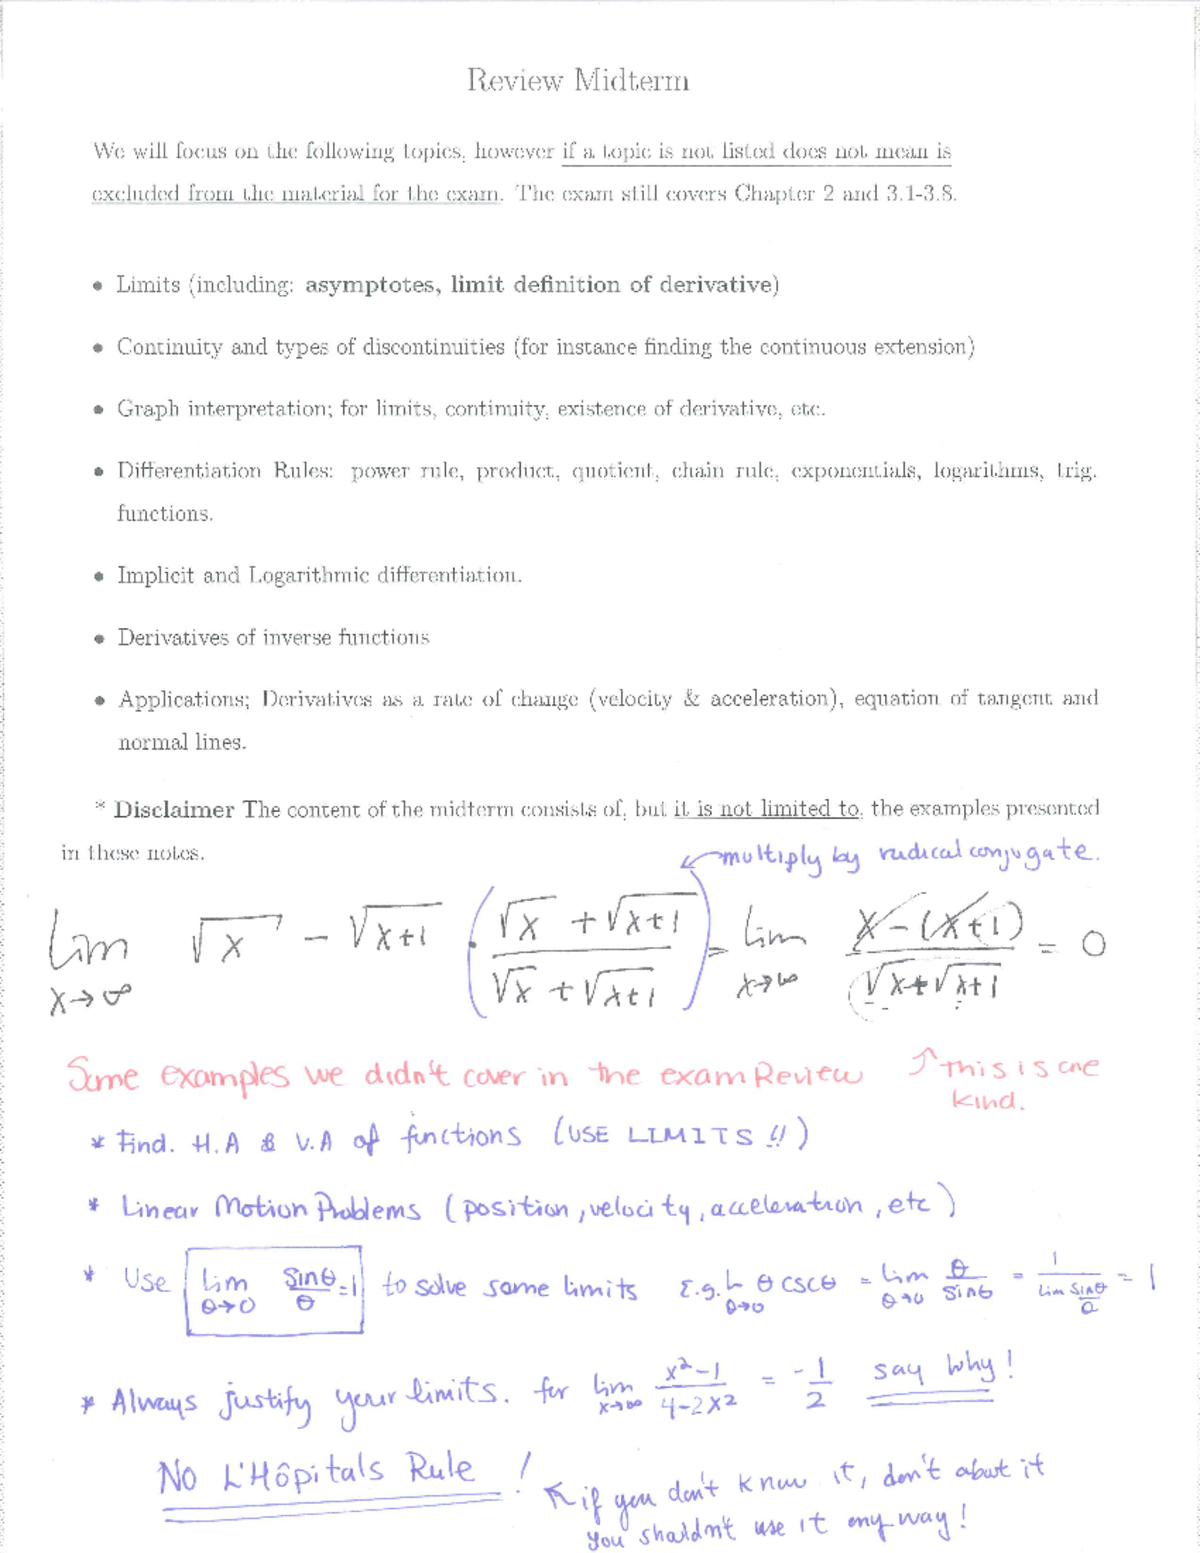 Review Midterm
We will focus on the following topics, however if a topic is not listed does not mean is
excluded from the material for the exam. The exam still covers Chapter 2 and 3.1-3.8.
• Limits (including: asymptotes, limit definition of derivative)
• Continuity and types of discontinuities (for instance finding the continuous extension)
• Graph interpretation; for limits, continuity, existence of derivative, etc.
• Differentiation Rules: power rule, product, quotient, chain rule, exponentials, logarithms, trig.
functions.
• Implicit and Logarithmic differentiation.
• Derivatives of inverse functions
• Applications; Derivatives as a rate of change (velocity & acceleration), equation of tangent and
normal lines.
* Disclaimer The content of the midterm consists of, but it is not limited to, the examples presented
in these notes.
multiply by radical conjugate.
lim x→∞ √x - √(x+1) · ((√x + √(x+1)) / (√x + √(x+1))) = lim x→∞ (x - (x+1)) / (√x + √(x+1)) = 0
Some examples we didn't cover in the exam Review ↑ This is one
kind.
* Find. H.A & V.A of functions (USE LIMITS !!)
* Linear Motion Problems (position, velocity, acceleration, etc)
* Use lim θ→0 sinθ/θ = 1 to solve some limits E.g. L θ→0 θ cscθ = lim θ→0 θ/sinθ = 1/(lim sinθ/θ) = 1
* Always justify your limits. for lim x→∞ (x²-1)/(4-2x²) = -1/2 say why!
No L'Hôpitals Rule !
↖ if you don't know it, don't about it
you shouldn't use it any way!